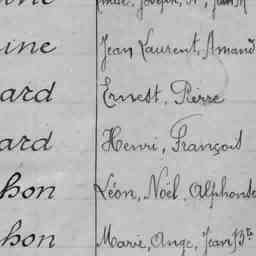 ine Jean Laurent, Amand
ard Ernest, Pierre
ard Henri, François
hon Léon, Noël, Alphonse
hon Marie, Ange, Jean Bte